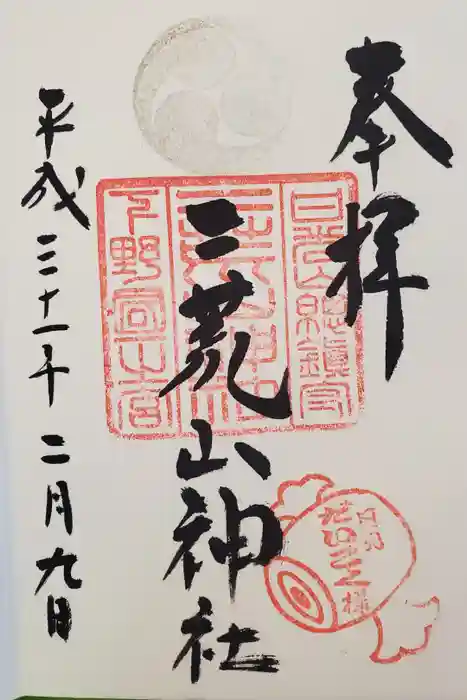 奉拝
二荒山神社
平成三十一年二月九日
日光山總鎮守
二荒山神社
下野國一之宮
日光
招き大国
様